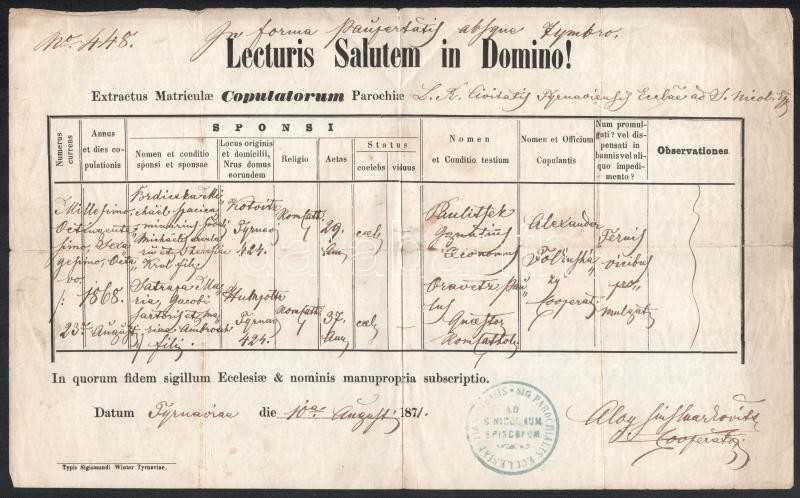 No. 448. In forma paupertatis absque Tymbro.
Lecturis Salutem in Domino!
Extractus Matriculæ Copulatorum Parochiæ L. R. Civitatis Tyrnaviensis Ecclae ad S. Nicol. Epp
Numerus currens
Annus et dies copulationis
SPONSI
Nomen et conditio sponsi et sponsae
Locus originis et domicilii, Nrus domus eorundem
Religio
Aetas
Status
coelebs
viduus
Nomen et Conditio testium
Nomen et Officium Copulantis
Num promulgati? vel dispensati in bannis vel aliquo impedimento?
Observationes
Millesimo
Octingente
simo, Sexa
gesimo, Octa
vo.
1868.
23. Augusti
Michaelis
filij
Tyrnav
424.
Rom Cath
29.
coel
Satrapa Ma
ria, Jacobi
filij
Tyrnav
424.
Rom Cath
37.
coel
Paulitsek
Ignatius
Oeconomus
Oravetz Pau
lus
Quæstor
Rom Cathol
Alexander
Cooperat
Ternis
vicibus
pro
mulgati
In quorum fidem sigillum Ecclesiæ & nominis manupropria subscriptio.
Datum Tyrnaviae die 10a Augusti 1871.
SIG PAROCHIALIS ECCLESIAE
AD
S NICOLAUM
EPISCOPUM
Cooperator
Typis Sigismundi Winter Tyrnaviae.